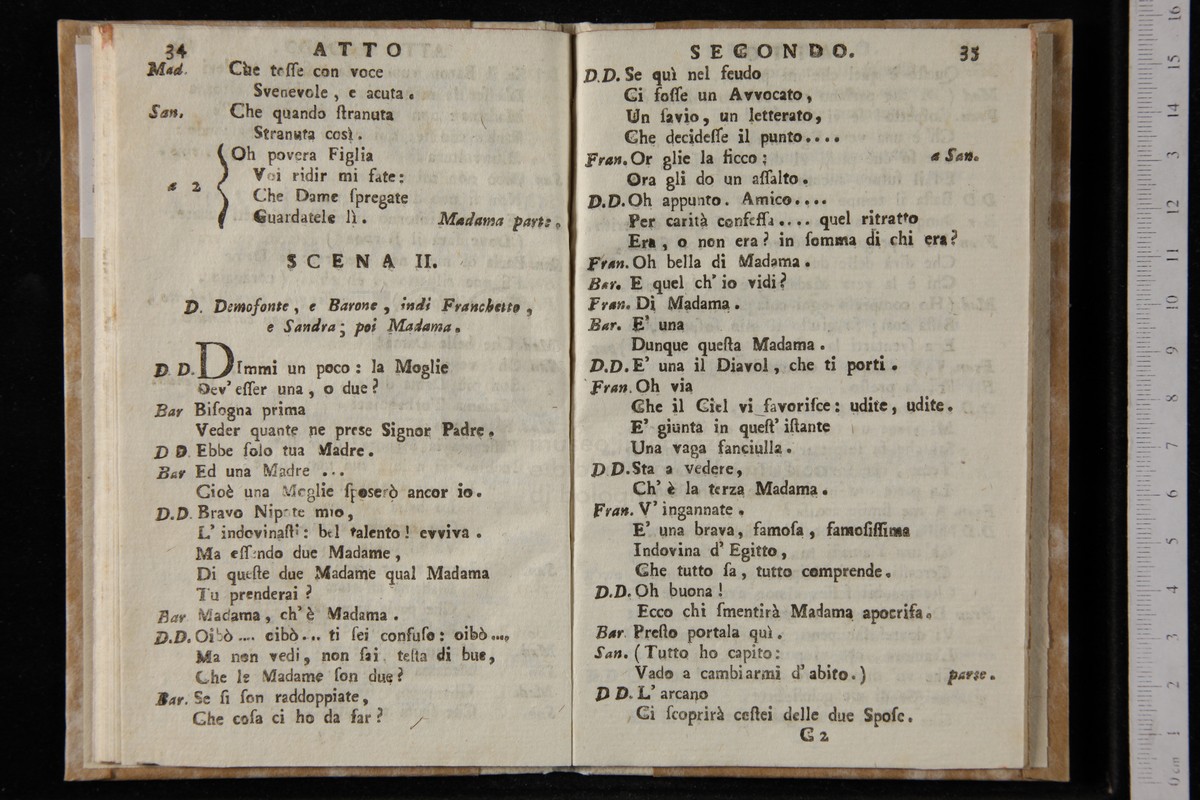 34 ATTO
Mad. Che teſſe con voce
Svenevole, e acuta.
San. Che quando ſtranuta
Stranuta così.
a 2 Oh povera Figlia
Voi ridir mi fate:
Che Dame ſpregate
Guardatele lì. Madama parte.
SCENA II.
D. Demofonte, e Barone, indi Franchetto,
e Sandra; poi Madama.
D. D. DImmi un poco: la Moglie
Dev' eſſer una, o due?
Bar Biſogna prima
Veder quante ne preſe Signor Padre.
D D Ebbe ſolo tua Madre.
Bar Ed una Madre ...
Cioè una Moglie ſpoſerò ancor io.
D.D. Bravo Nipote mio,
L' indovinaſti: bel talento! evviva.
Ma eſſendo due Madame,
Di queſte due Madame qual Madama
Tu prenderai?
Bar Madama, ch' è Madama.
D.D. Oibò .... oibò ... ti ſei confuſo: oibò....
Ma non vedi, non ſai, teſta di bue,
Che le Madame ſon due?
Bar. Se ſi ſon raddoppiate,
Che coſa ci ho da far?
SECONDO. 35
D.D. Se quì nel feudo
Ci foſſe un Avvocato,
Un ſavio, un letterato,
Che decideſſe il punto....
Fran. Or glie la ficco: a San.
Ora gli do un aſſalto.
D.D. Oh appunto. Amico....
Per carità confeſſa.... quel ritratto
Era, o non era? in ſomma di chi era?
Fran. Oh bella di Madama.
Bar. E quel ch' io vidi?
Fran. Di Madama.
Bar. E' una
Dunque queſta Madama.
D.D. E' una il Diavol, che ti porti.
Fran. Oh via
Che il Ciel vi favoriſce: udite, udite.
E' giunta in queſt' iſtante
Una vaga fanciulla.
D D. Sta a vedere,
Ch' è la terza Madama.
Fran. V' ingannate.
E' una brava, famoſa, famoſiſſima
Indovina d' Egitto,
Che tutto ſa, tutto comprende.
D.D. Oh buona!
Ecco chi ſmentirà Madama apocrifa.
Bar. Preſto portala quì.
San. (Tutto ho capito:
Vado a cambiarmi d' abito.) parte.
D D. L' arcano
Ci ſcoprirà coſtei delle due Spoſe.
G 2